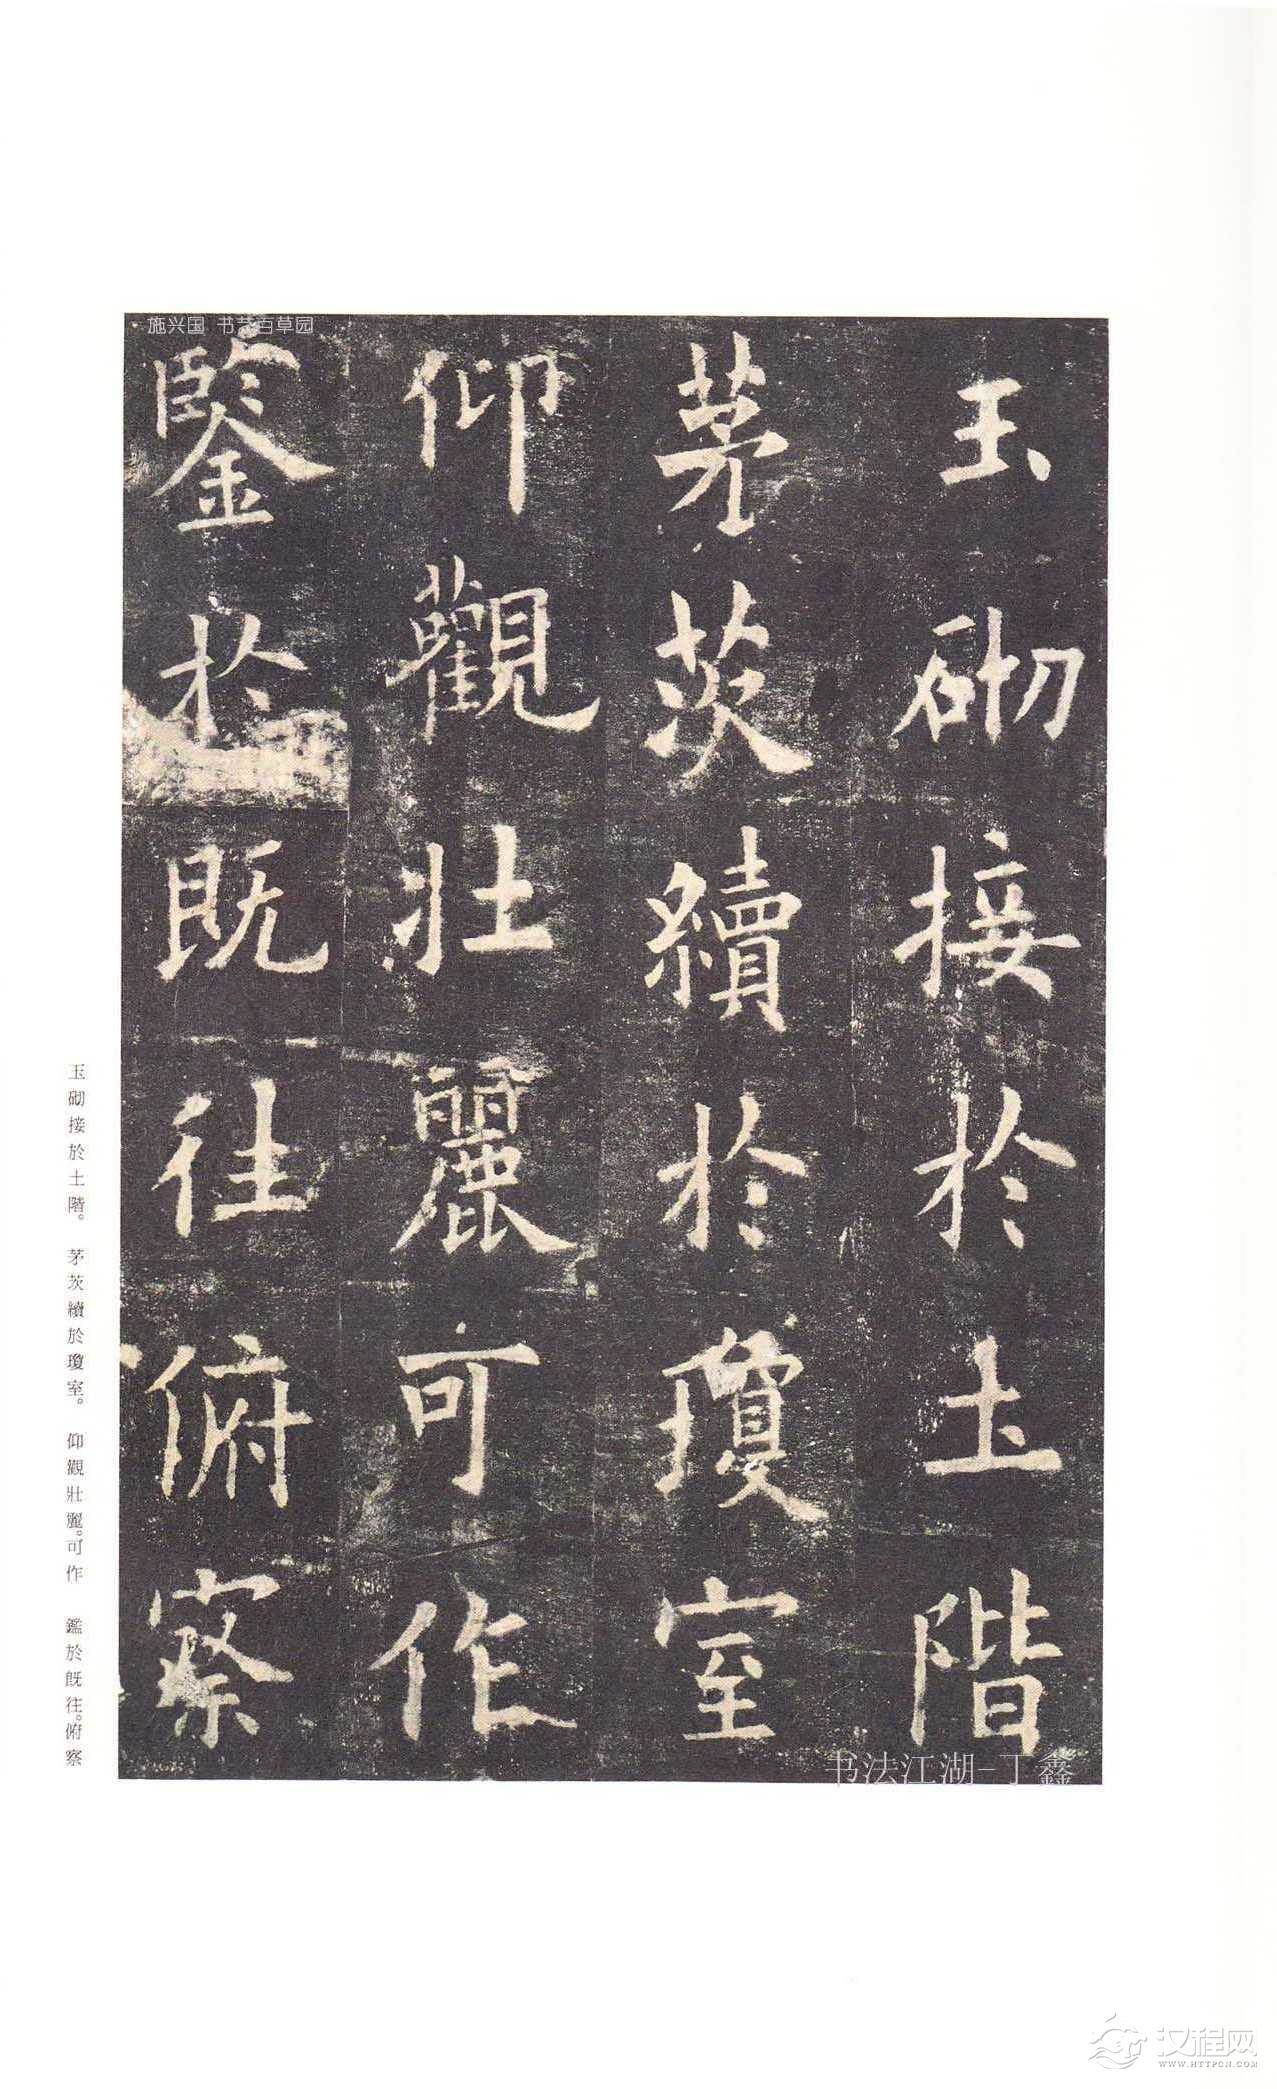 施兴国 书艺百草园
玉砌接於土階
茅茨續於瓊室
仰觀壯麗可作
鑒於既往俯察
玉砌接於土階。 茅茨續於瓊室。 仰觀壯麗。可作 鑑於既往。俯察
书法江湖-丁鑫
汉程网
WWW.HTTPCN.COM